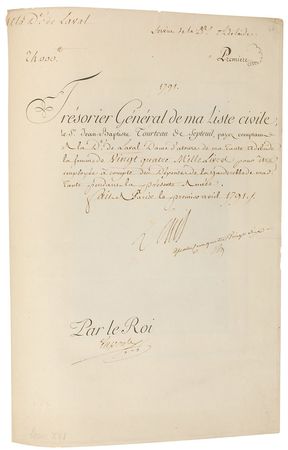 de Laval
Service de la
24000.
Première
1791.
Trésorier Général de ma Liste civile,
le Sr. Jean-Baptiste Tourteau de Septeuil, payez comptant
à la De. de Laval Dame d'atours de ma tante Adelaide
la somme de Vingt quatre Mille Livres pour être
employée à compte des Dépenses de la Garderobe de ma
tante pendant la présente Année.
Fait à Paris le premier avril 1791.
Par le Roi